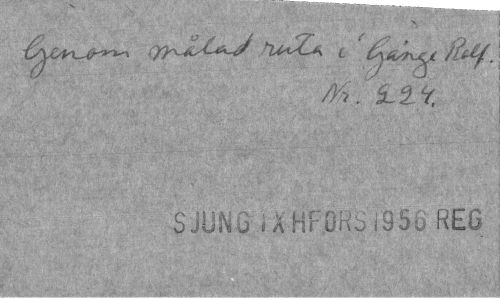 Genom målad ruta i Gånge Rolf.
Nr. 224.
SJUNG IX HFORS 1956 REG